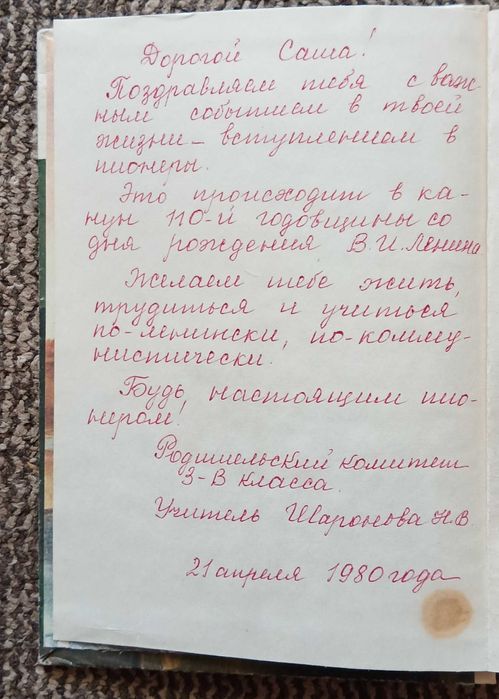 Дорогой Саша!
Поздравляем тебя с важ-
ным событием в твоей
жизни – вступлением в
пионеры.
Это происходит в ка-
нун 110-й годовщины со
дня рождения В.И. Ленина
Желаем тебе жить,
трудиться и учиться
по-ленински, по-комму-
нистически.
Будь настоящим пио-
нером!
Родительский комитет
3-В класса.
Учитель Шаронова Н.В.
21 апреля 1980 года